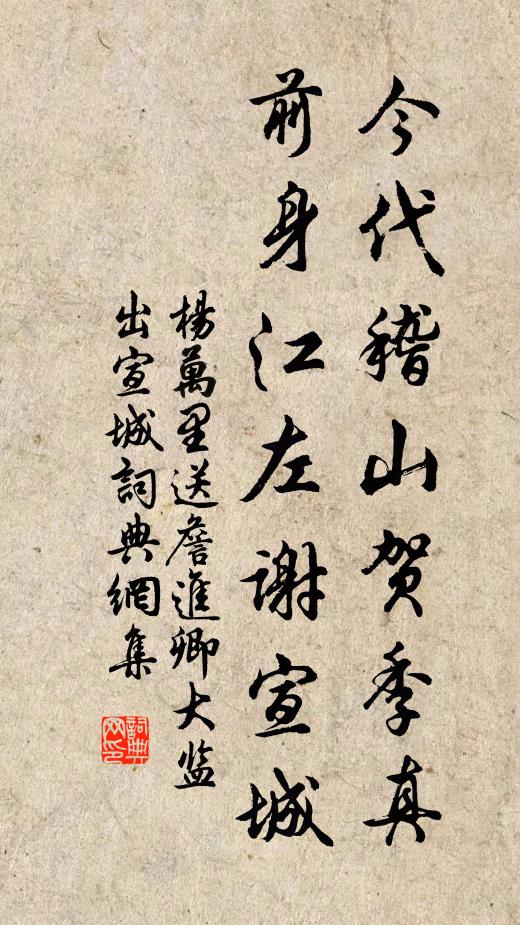 今代稽山贺季真
前身江左谢宣城
楊萬里送詹進卿大监
出宣城詞典網集
詞典网印